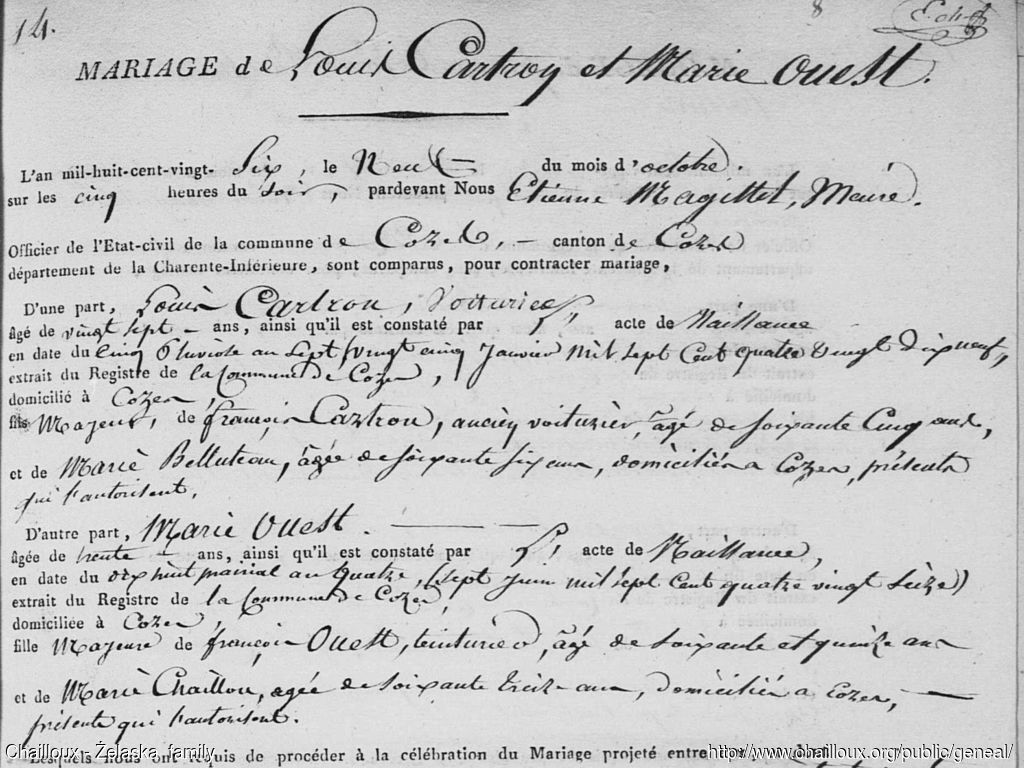 14.
8
MARIAGE de Louis Cartron et Marie Ouest.
L'an mil-huit-cent-vingt- Six, le Neuf du mois d'octobre.
sur les cinq heures du soir, pardevant Nous Etienne Magittet, Maire.
Officier de l'Etat-civil de la commune de Cozes, - canton de Cozes
département de la Charente-Inférieure, sont comparus, pour contracter mariage,
D'une part, Louis Cartron, Voiturier,
âgé de vingt sept - ans, ainsi qu'il est constaté par l' acte de Naissance
en date du Cinq Pluviose an Sept (vingt cinq Janvier mil sept Cent quatre vingt dix neuf,
extrait du Registre de la Commune de Cozes,
domicilié à Cozes,
fils Majeur, de françois Cartron, ancien voiturier, âgé de soixante Cinq ans,
et de Marie Belluteau, âgée de soixante six ans, domiciliés a Cozes, présents
qui l'autorisent,
D'autre part, Marie Ouest.
âgée de trente - ans, ainsi qu'il est constaté par l' acte de Naissance,
en date du dix huit prairial an quatre, (sept Juin mil sept Cent quatre vingt Seize)
extrait du Registre de la Commune de Cozes,
domiciliée à Cozes,
fille Majeure de françois Ouest, teinturier, âgé de soixante et quinze ans
et de Marie Chaillou, agée de soixante treize ans, domiciliés a Cozes, -
présents qui l'autorisent.
Lesquels nous ont requis de procéder à la célébration du Mariage projeté entre
Chailloux - Żelaska family
http://www.chailloux.org/public/geneal/